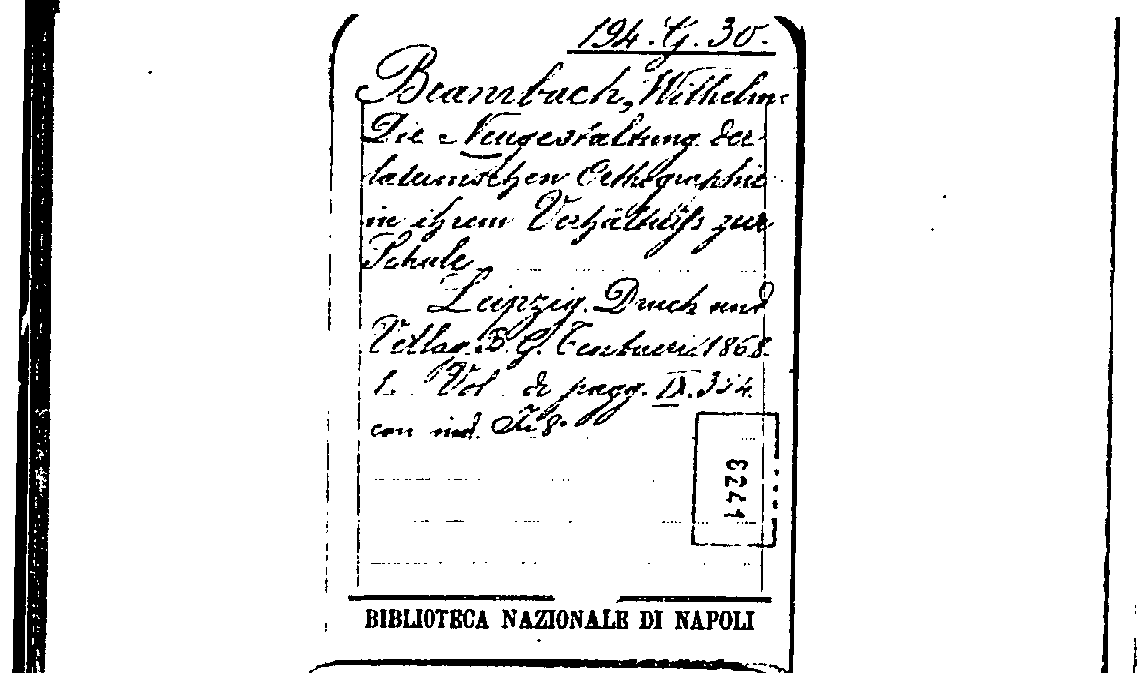 194. G. 30.
Brambach, Wilhelm
Die Neugestaltung der
lateinischen Orthographie
in ihrem Verhältniss zur
Schule
Leipzig. Druck und
Verlag B. G. Teubner. 1868.
1. Vol di pagg. IX. 354
con ind. Fr 8.
6241
BIBLIOTECA NAZIONALE DI NAPOLI